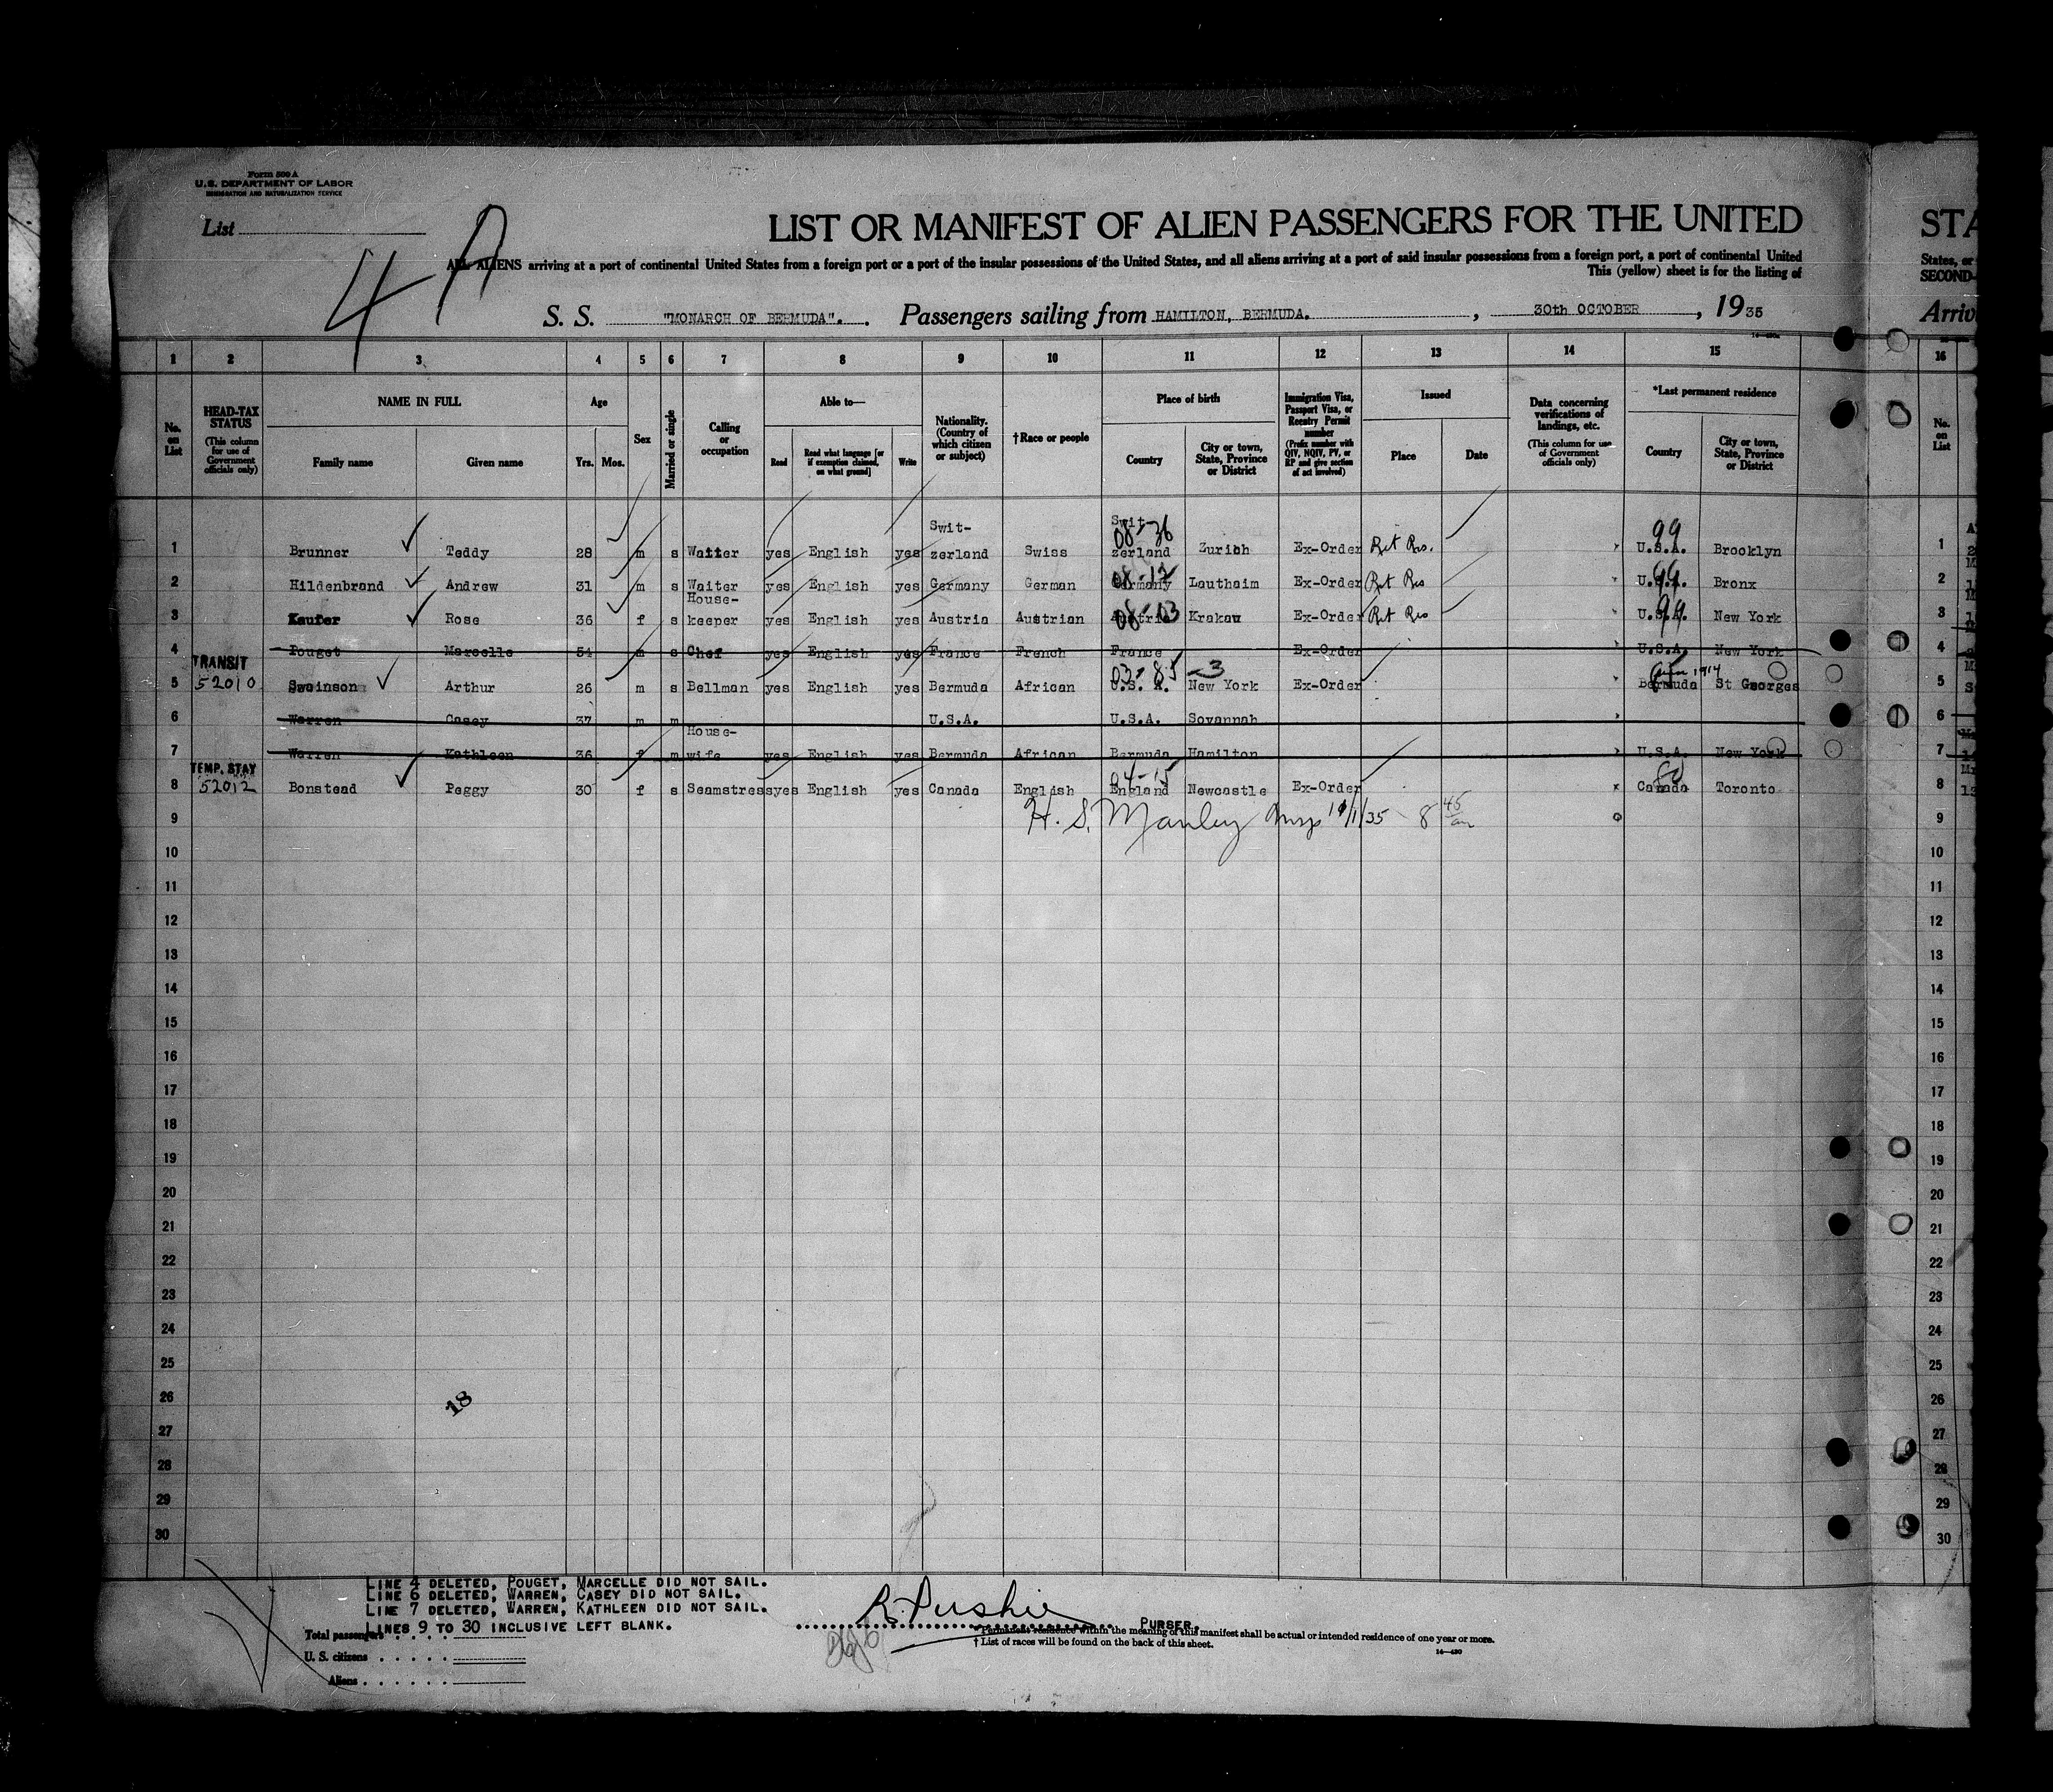 Form 500 A
U.S. DEPARTMENT OF LABOR
IMMIGRATION AND NATURALIZATION SERVICE
List
4-A
LIST OR MANIFEST OF ALIEN PASSENGERS FOR THE UNITED
ALL ALIENS arriving at a port of continental United States from a foreign port or a port of the insular possessions of the United States, and all aliens arriving at a port of said insular possessions from a foreign port, a port of continental United
This (yellow) sheet is for the listing of
S. S. "MONARCH OF BERMUDA". Passengers sailing from HAMILTON, BERMUDA. , 30th OCTOBER , 1935
STA
States, or
SECOND-
Arriv
1 2 3 4 5 6 7 8 9 10 11 12 13 14 15 16
No. on List
HEAD-TAX STATUS (This column for use of Government officials only)
NAME IN FULL
Family name Given name
Age
Yrs. Mos.
Sex
Married or single
Calling or occupation
Able to—
Read Read what language [or if exemption claimed, on what ground] Write
Nationality. (Country of which citizen or subject)
†Race or people
Place of birth
Country City or town, State, Province or District
Immigration Visa, Passport Visa, or Reentry Permit number (Prefix number with QIV, NQIV, PV, or RP and give section of act involved)
Issued
Place Date
Data concerning verifications of landings, etc. (This column for use of Government officials only)
*Last permanent residence
Country City or town, State, Province or District
No. on List
1 Brunner Teddy 28 m s Waiter yes English yes Swit-zerland Swiss Swit-zerland 08-36 Zurich Ex-Order Ret Res. U.S.A. 99 Brooklyn 1
2 Hildenbrand Andrew 31 m s Waiter yes English yes Germany German Germany 08-12 Lauthaim Ex-Order Ret Res U.S.A. 99 Bronx 2
3 Kaufer Rose 36 f s House-keeper yes English yes Austria Austrian Austria 08-03 Krakaw Ex-Order Ret Res U.S.A. 99 New York 3
4 Pouget Marcelle 54 m s Chef yes English yes France French France Ex-Order U.S.A. New York 4
TRANSIT
5 52010 Swainson Arthur 26 m s Bellman yes English yes Bermuda African U.S.A. 03-85 New York -3 Ex-Order Bermuda 1914 St Georges 5
6 Warren Casey 37 m m U.S.A. U.S.A. Sovannah 6
7 Warren Kathleen 36 f m House-wife yes English yes Bermuda African Bermuda Hamilton U.S.A. New York 7
TEMP. STAY
8 52012 Bonstead Peggy 30 f s Seamstress yes English yes Canada English England 04-15 Newcastle Ex-Order Canada Toronto 8
9 H. S. Manley Insp 11/1/35 8 45 am 9
10 10
11 11
12 12
13 13
14 14
15 15
16 16
17 17
18 18
19 19
20 20
21 21
22 22
23 23
24 24
25 25
26 18 26
27 27
28 28
29 29
30 30
LINE 4 DELETED, POUGET, MARCELLE DID NOT SAIL.
LINE 6 DELETED, WARREN, CASEY DID NOT SAIL.
LINE 7 DELETED, WARREN, KATHLEEN DID NOT SAIL.
LINES 9 TO 30 INCLUSIVE LEFT BLANK.
PURSER.
Total passengers
U. S. citizens
Aliens
* Permanent residence within the meaning of this manifest shall be actual or intended residence of one year or more.
† List of races will be found on the back of this sheet.